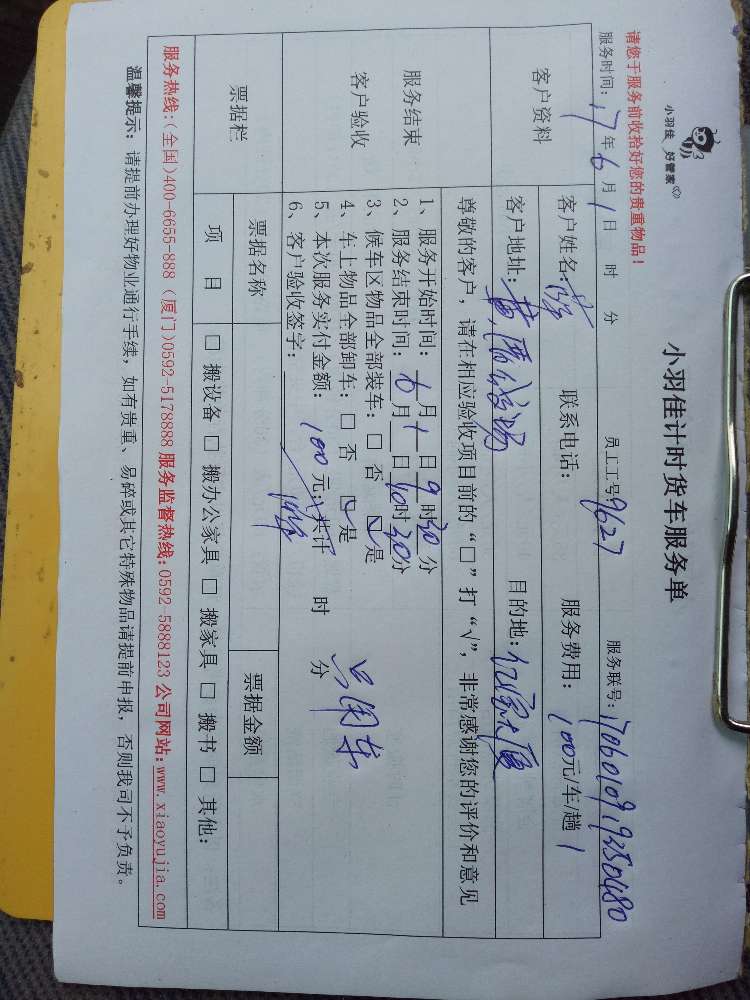 小羽佳 好管家
请您于服务前收拾好您的贵重物品！
小羽佳计时货车服务单
服务时间：17年6月1日 时 分 员工工号：9627 服务联号：1706010919250480
客户资料
客户姓名： 联系电话： 服务费用：100元/车/趟 1
客户地址： 目的地：
服务结束
客户验收
尊敬的客户，请在相应验收项目前的“□”打“√”，非常感谢您的评价和意见
1、服务开始时间： 6月1日9时30分
2、服务结束时间： 月 日10时30分
3、候车区物品全部装车：□ 否 ☑ 是
4、车上物品全部卸车：□ 否 ☑ 是
5、本次服务实付金额：100元；共计 时 分
6、客户验收签字：
票据栏
票据名称 票据金额
项 目 □ 搬设备 □ 搬办公家具 □ 搬家具 □ 搬书 □ 其他：
服务热线:(全国)400-6655-888 (厦门)0592-5178888 服务监督热线:0592-5888123 公司网站:www.xiaoyujia.com
温馨提示：请提前办理好物业通行手续，如有贵重、易碎或其它特殊物品请提前申报，否则我司不予负责。